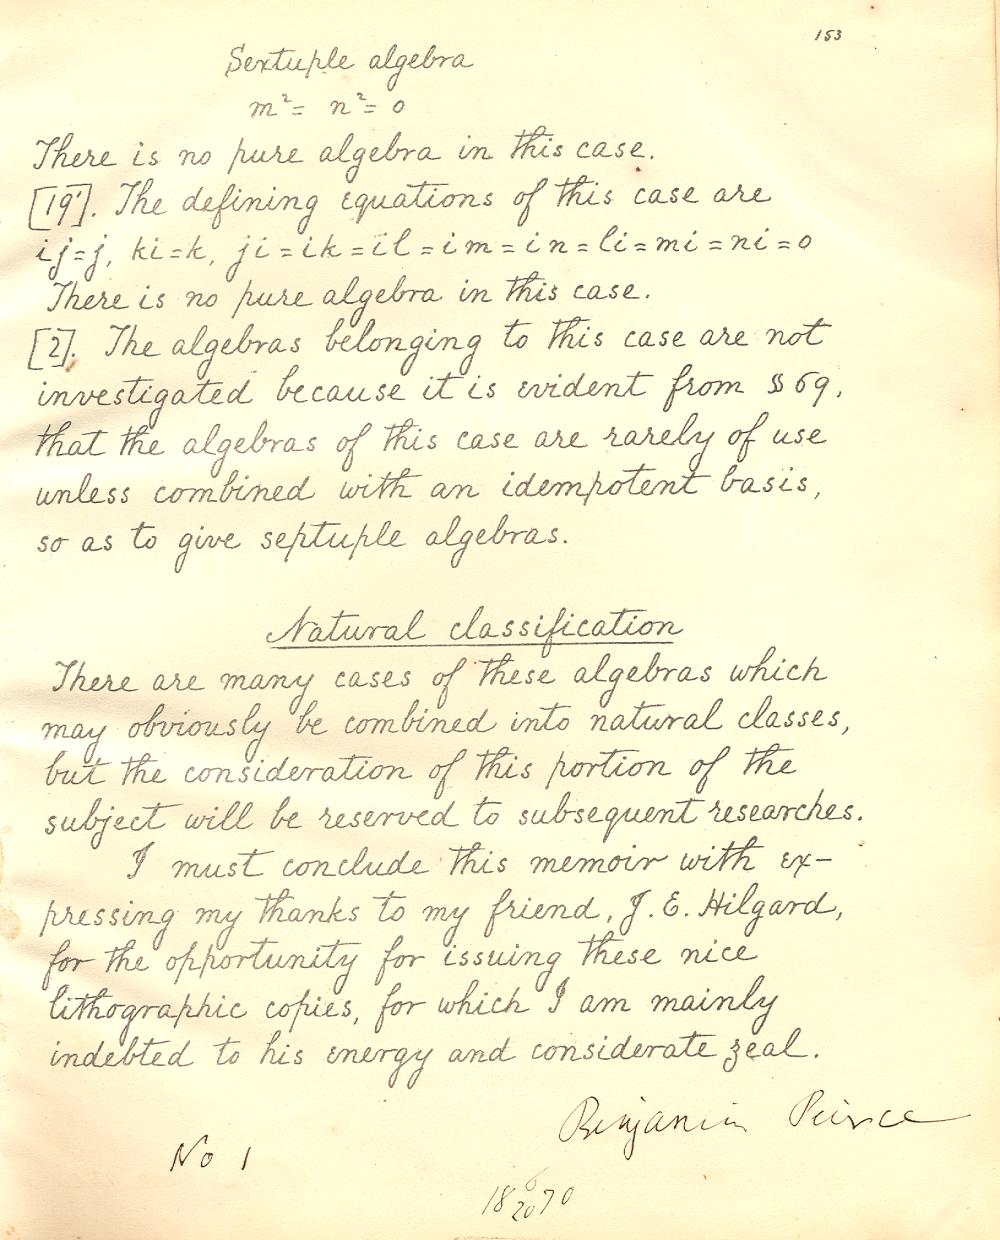 153
Sextuple algebra
m²= n²= 0
There is no pure algebra in this case.
[19']. The defining equations of this case are
ij=j, ki=k, ji=ik=il=im=in=li=mi=ni=0
There is no pure algebra in this case.
[2]. The algebras belonging to this case are not
investigated because it is evident from § 69,
that the algebras of this case are rarely of use
unless combined with an idempotent basis,
so as to give septuple algebras.
Natural classification
There are many cases of these algebras which
may obviously be combined into natural classes,
but the consideration of this portion of the
subject will be reserved to subsequent researches.
I must conclude this memoir with ex-
pressing my thanks to my friend, J. E. Hilgard,
for the opportunity for issuing these nice
lithographic copies, for which I am mainly
indebted to his energy and considerate zeal.
Benjamin Peirce
No 1
18 6/20 70